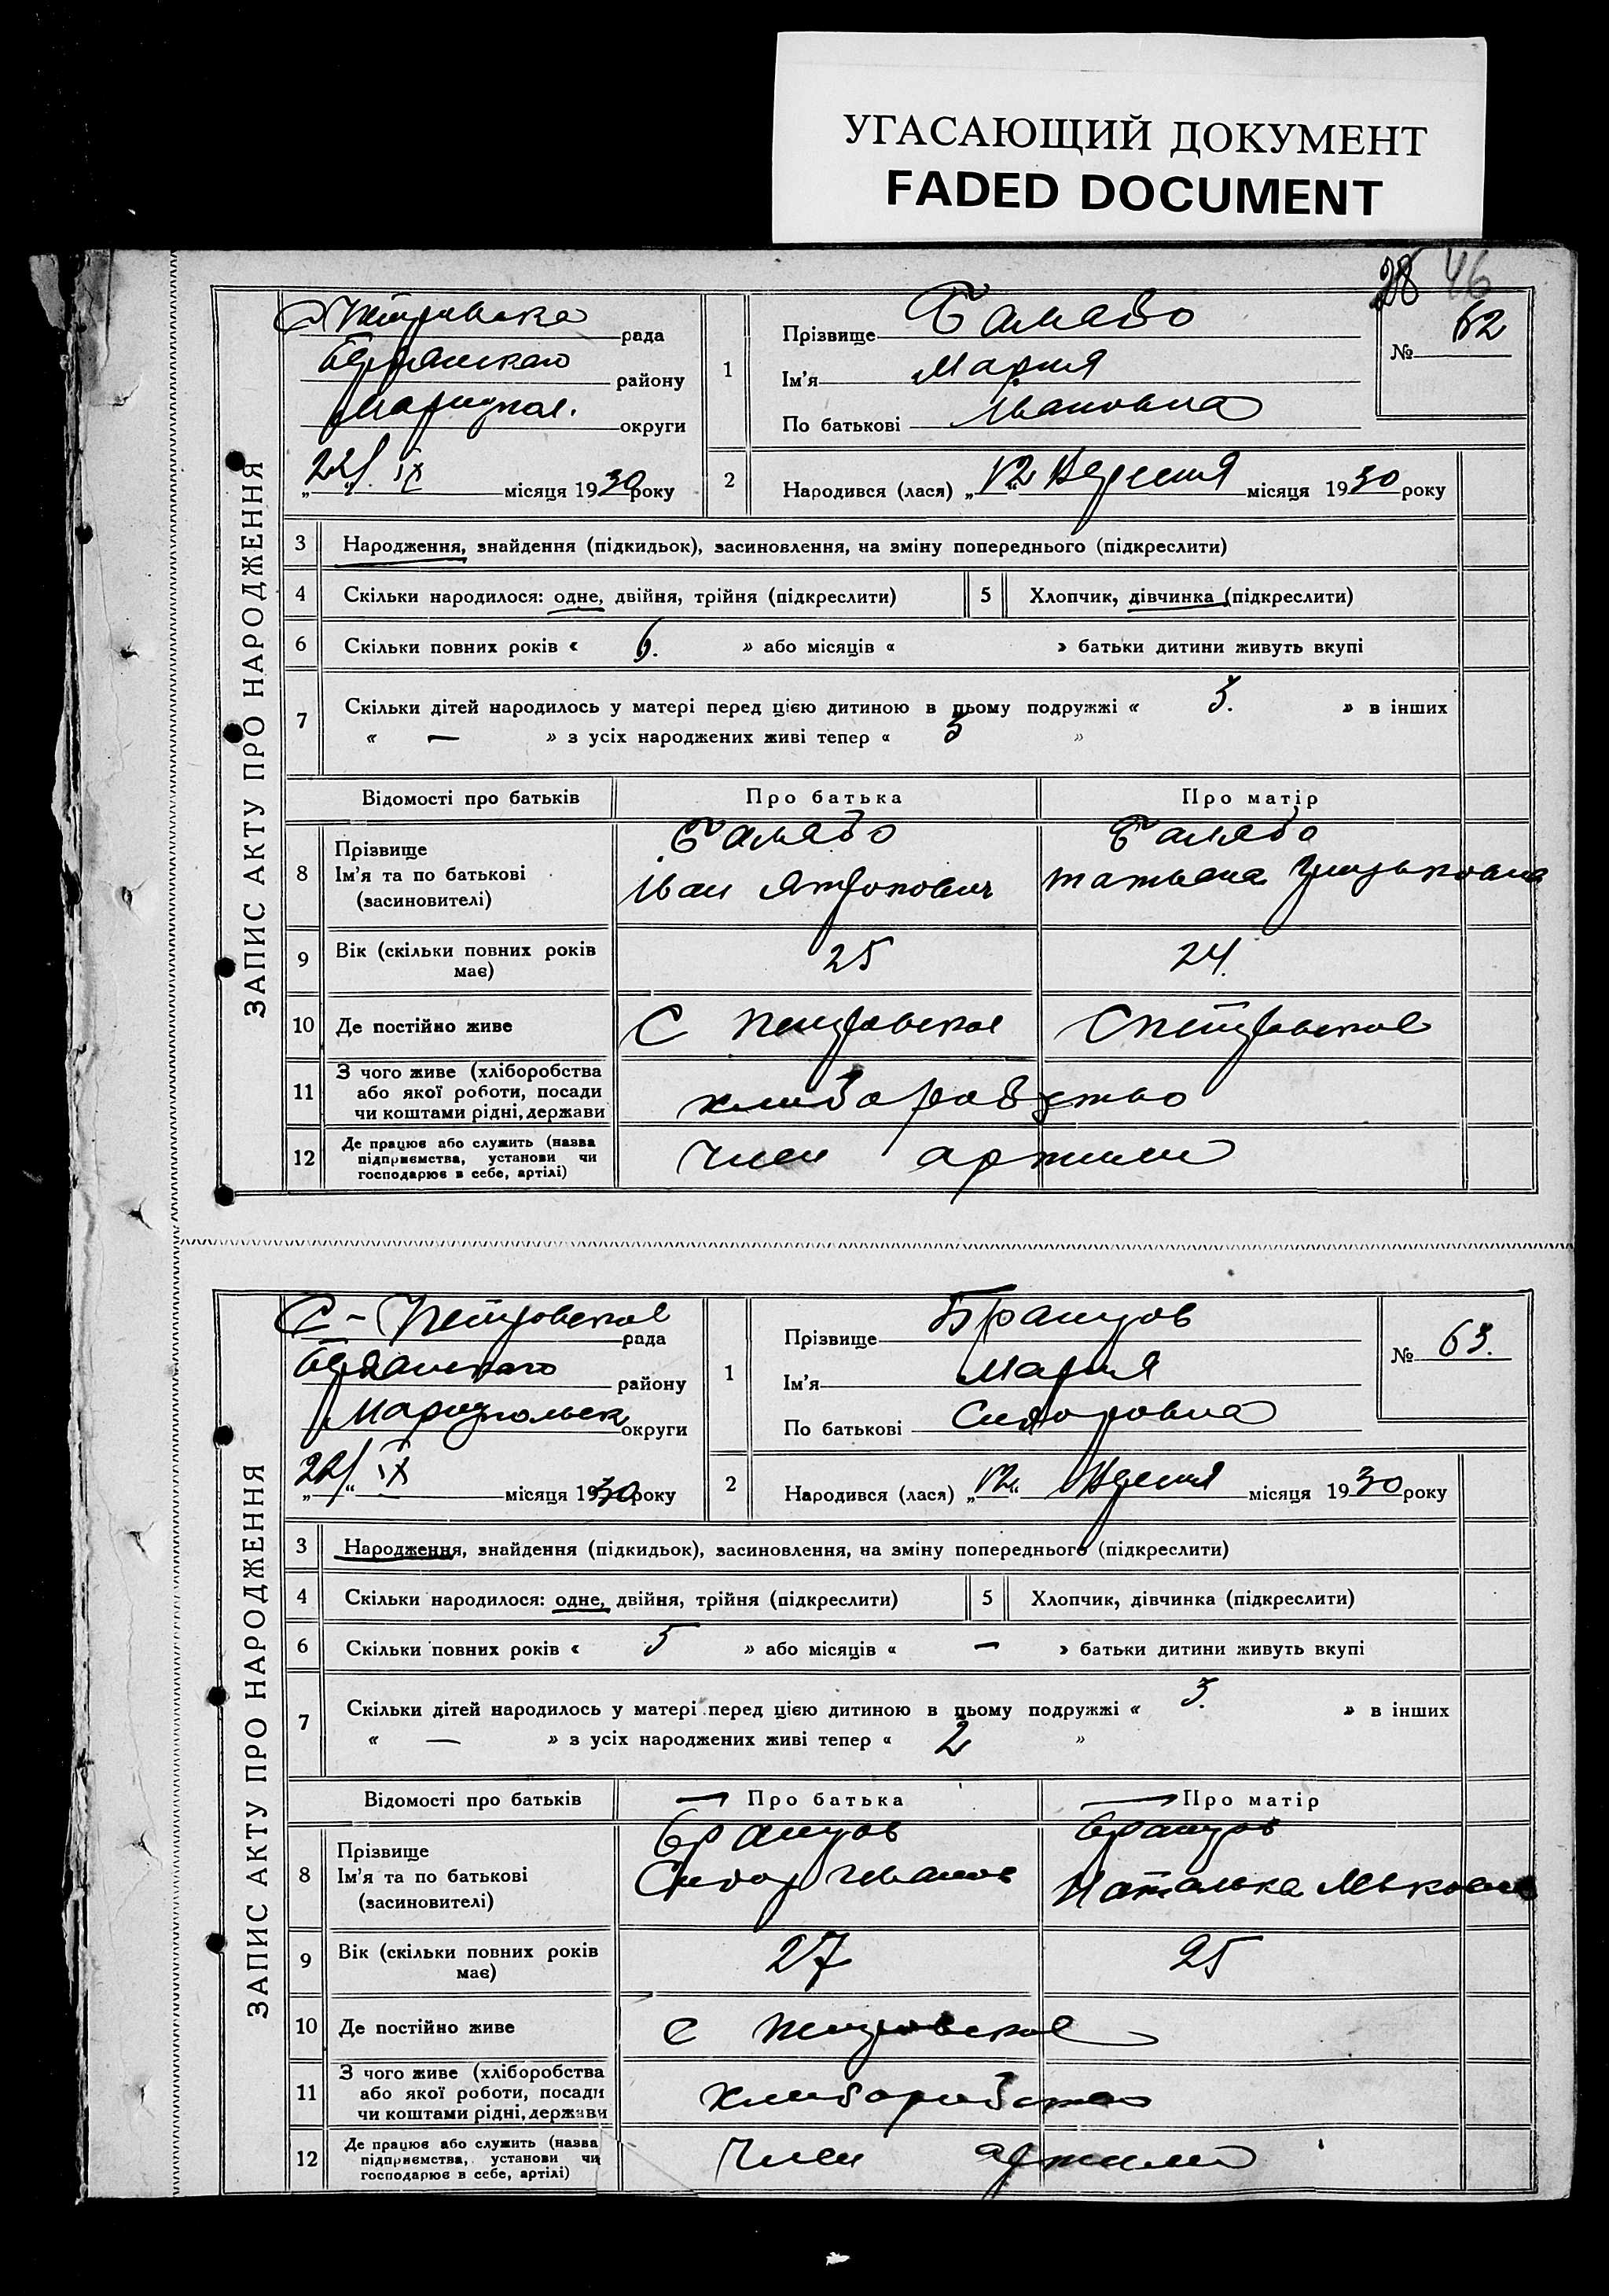 УГАСАЮЩИЙ ДОКУМЕНТ
FADED DOCUMENT
28 46
ЗАПИС АКТУ ПРО НАРОДЖЕННЯ
рада
району
округи
22/IX місяця 1930 року
1
Прізвище
Ім'я Мария
По батькові Івановна
№ 62
2
Народився (лася) „12“ Вересня місяця 1930 року
3 Народження, знайдення (підкидьок), засиновлення, на зміну попереднього (підкреслити)
4 Скільки народилося: одне, двійня, трійня (підкреслити) 5 Хлопчик, дівчинка (підкреслити)
6 Скільки повних років « 6. » або місяців « » батьки дитини живуть вкупі
7 Скільки дітей народилось у матері перед цією дитиною в цьому подружжі « 3. » в інших
« — » з усіх народжених живі тепер « 3 »
Відомості про батьків Про батька Про матір
8 Прізвище
Ім'я та по батькові Іван татьяна
(засиновителі)
9 Вік (скільки повних років має) 25 24.
10 Де постійно живе С Петровское С Петровское
11 З чого живе (хліборобства
або якої роботи, посади
чи коштами рідні, держави хлиборобство
12 Де працює або служить (назва
підприємства, установи чи
господарює в себе, артілі) Член артили
ЗАПИС АКТУ ПРО НАРОДЖЕННЯ
С-Петровское рада
району
Мариупольск округи
22/IX місяця 1930 року
1
Прізвище
Ім'я Мария
По батькові Сидоровна
№ 63.
2
Народився (лася) „12“ Вересня місяця 1930 року
3 Народження, знайдення (підкидьок), засиновлення, на зміну попереднього (підкреслити)
4 Скільки народилося: одне, двійня, трійня (підкреслити) 5 Хлопчик, дівчинка (підкреслити)
6 Скільки повних років « 5 » або місяців « — » батьки дитини живуть вкупі
7 Скільки дітей народилось у матері перед цією дитиною в цьому подружжі « 3. » в інших
« — » з усіх народжених живі тепер « 2 »
Відомості про батьків Про батька Про матір
8 Прізвище
Ім'я та по батькові Сидор Иванов Наталька
(засиновителі)
9 Вік (скільки повних років має) 27 25
10 Де постійно живе С Петровское
11 З чого живе (хліборобства
або якої роботи, посади
чи коштами рідні, держави хлиборобство
12 Де працює або служить (назва
підприємства, установи чи
господарює в себе, артілі) Член артили